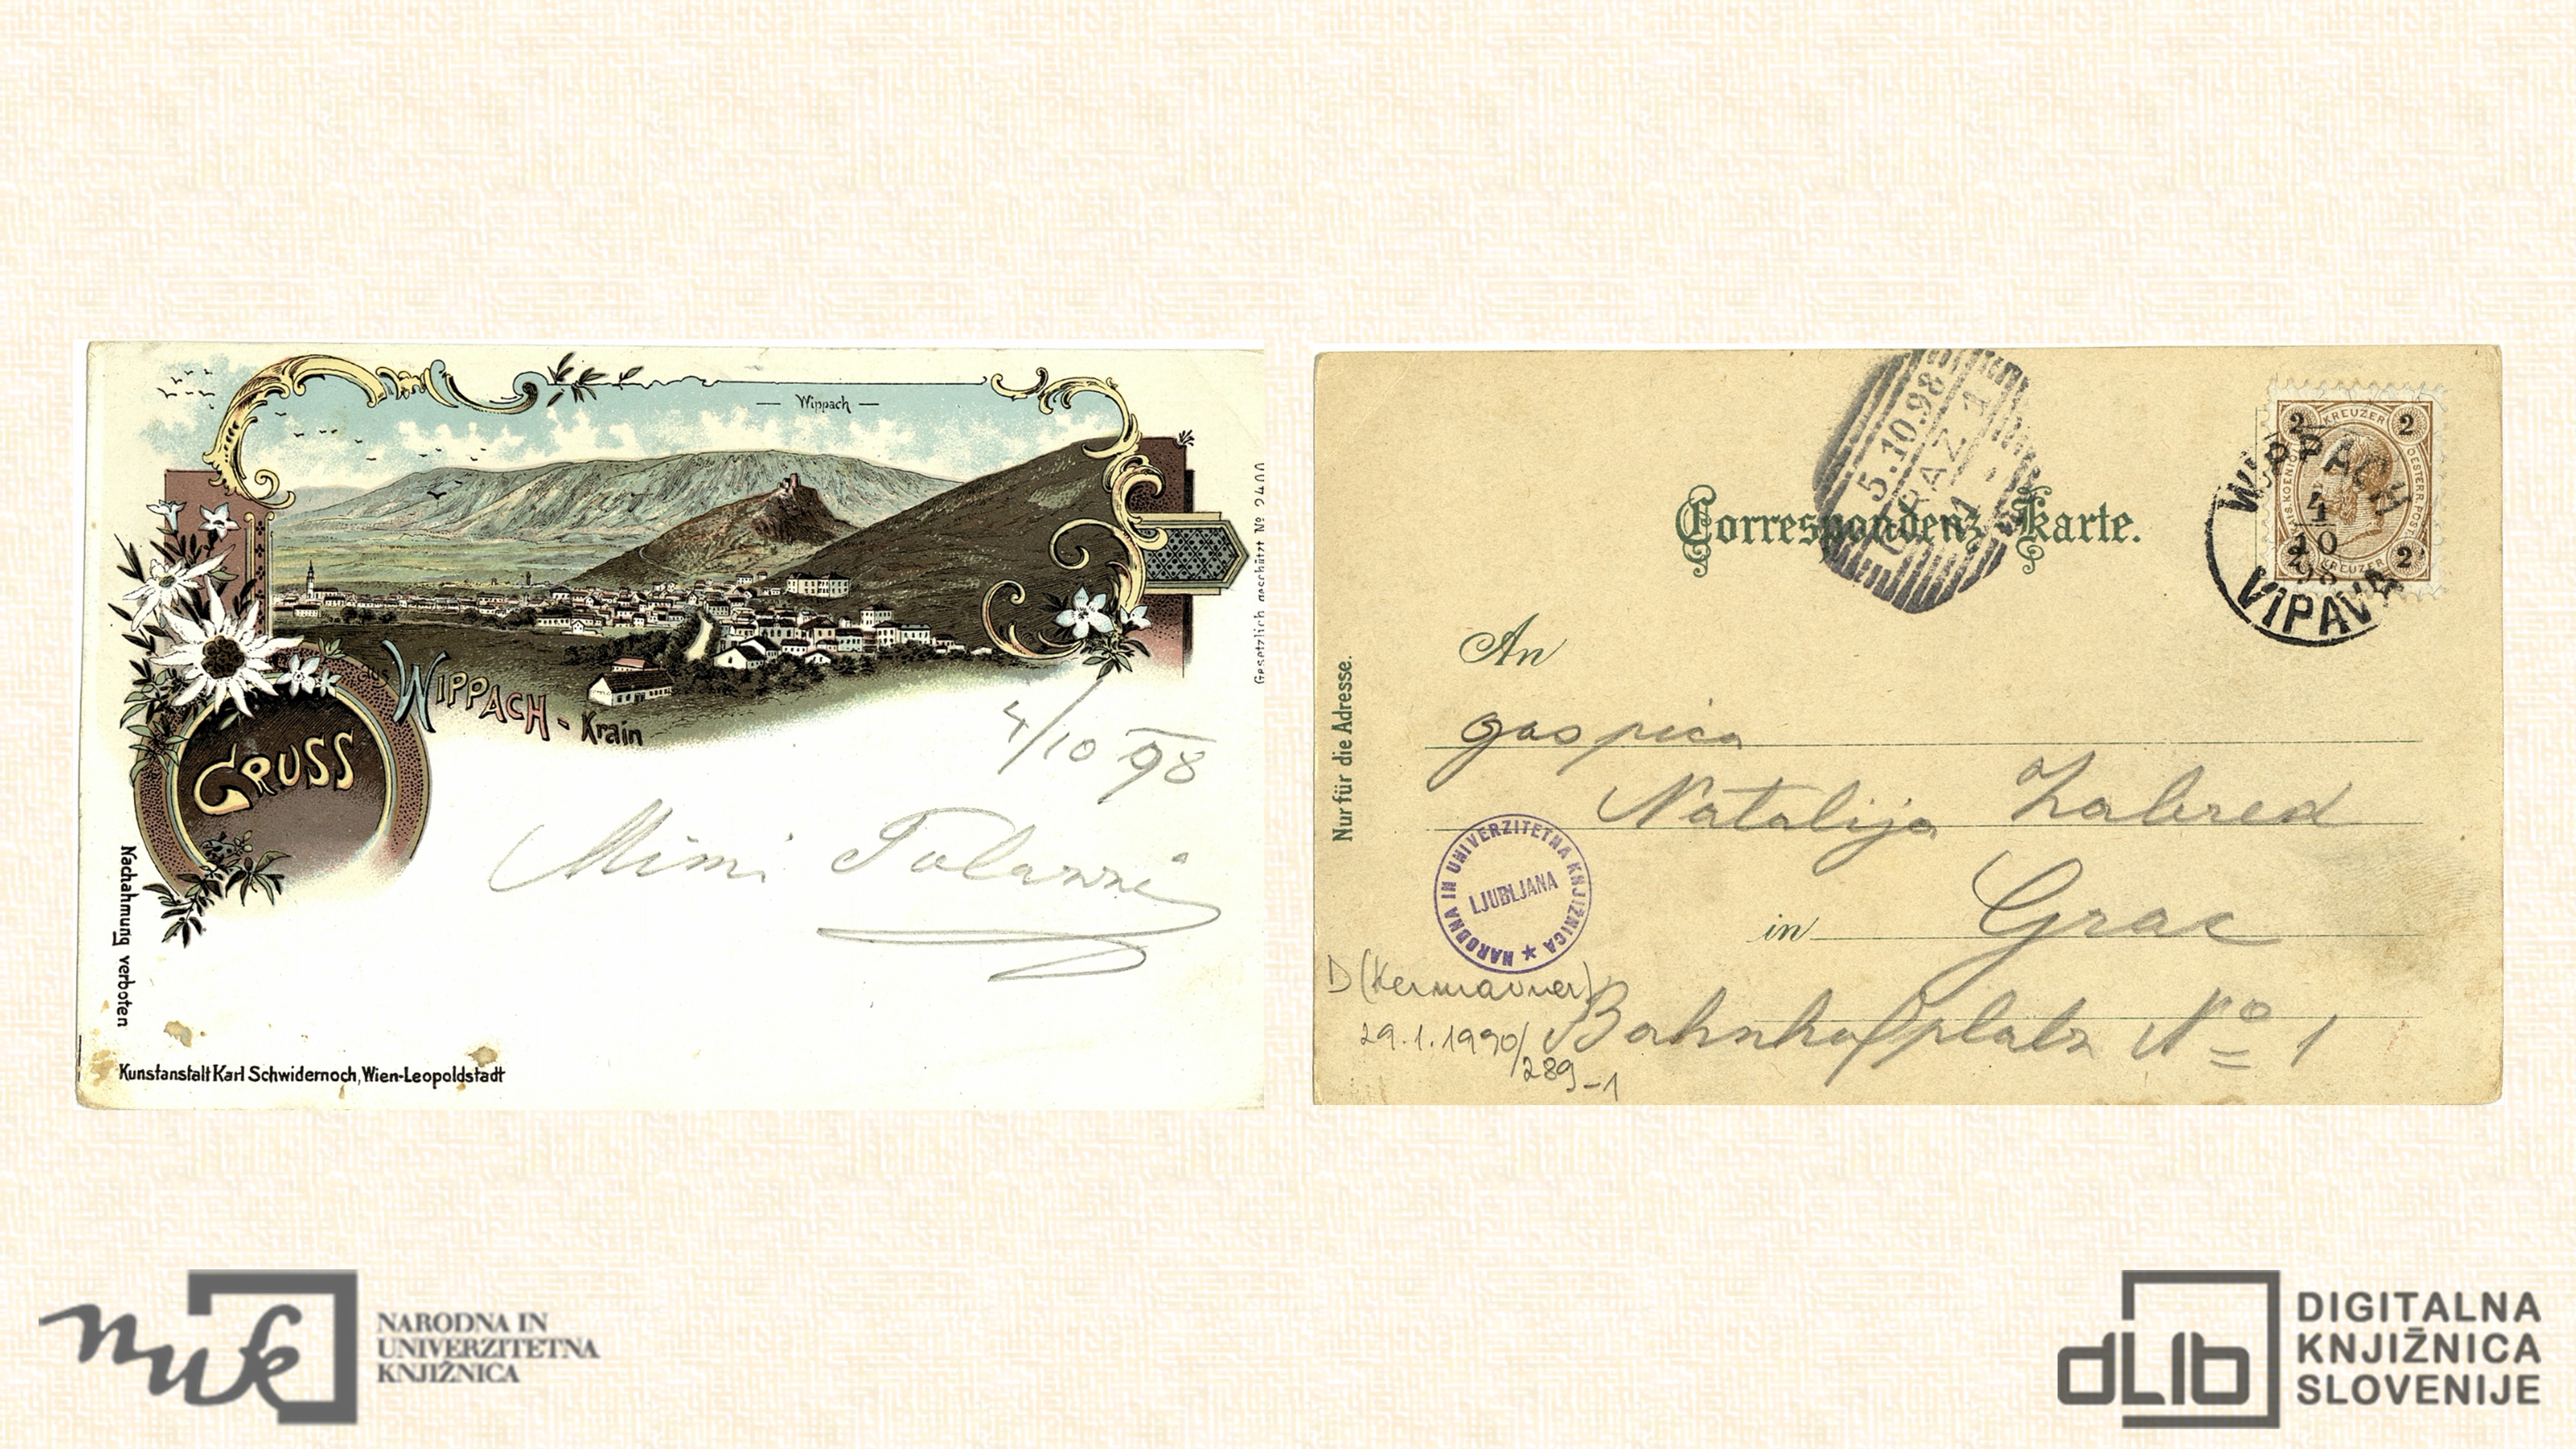 Wippach
GRUSS
aus WIPPACH - Krain
4/10 98
Mimi
Nachahmung verboten
Gesetzlich geschützt No 2400
Kunstanstalt Karl Schwidernoch, Wien-Leopoldstadt
5.10.98
GRAZ 1
Correspondenz-Karte.
2 KREUZER 2
2 KREUZER 2
WIPPACH
4
10
98
VIPAVA
Nur für die Adresse.
An
gospica
Natalija Zabred
in Grac
Bahnhofplatz No 1
NARODNA IN UNIVERZITETNA KNJIŽNICA
LJUBLJANA
D (Kermavner)
29.1.1990/
289-1
nuk
NARODNA IN
UNIVERZITETNA
KNJIŽNICA
dLib
DIGITALNA
KNJIŽNICA
SLOVENIJE